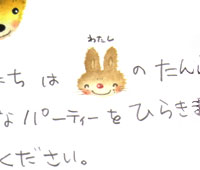 わたし
たちは の たん
なパーティーをひらきま
ください。